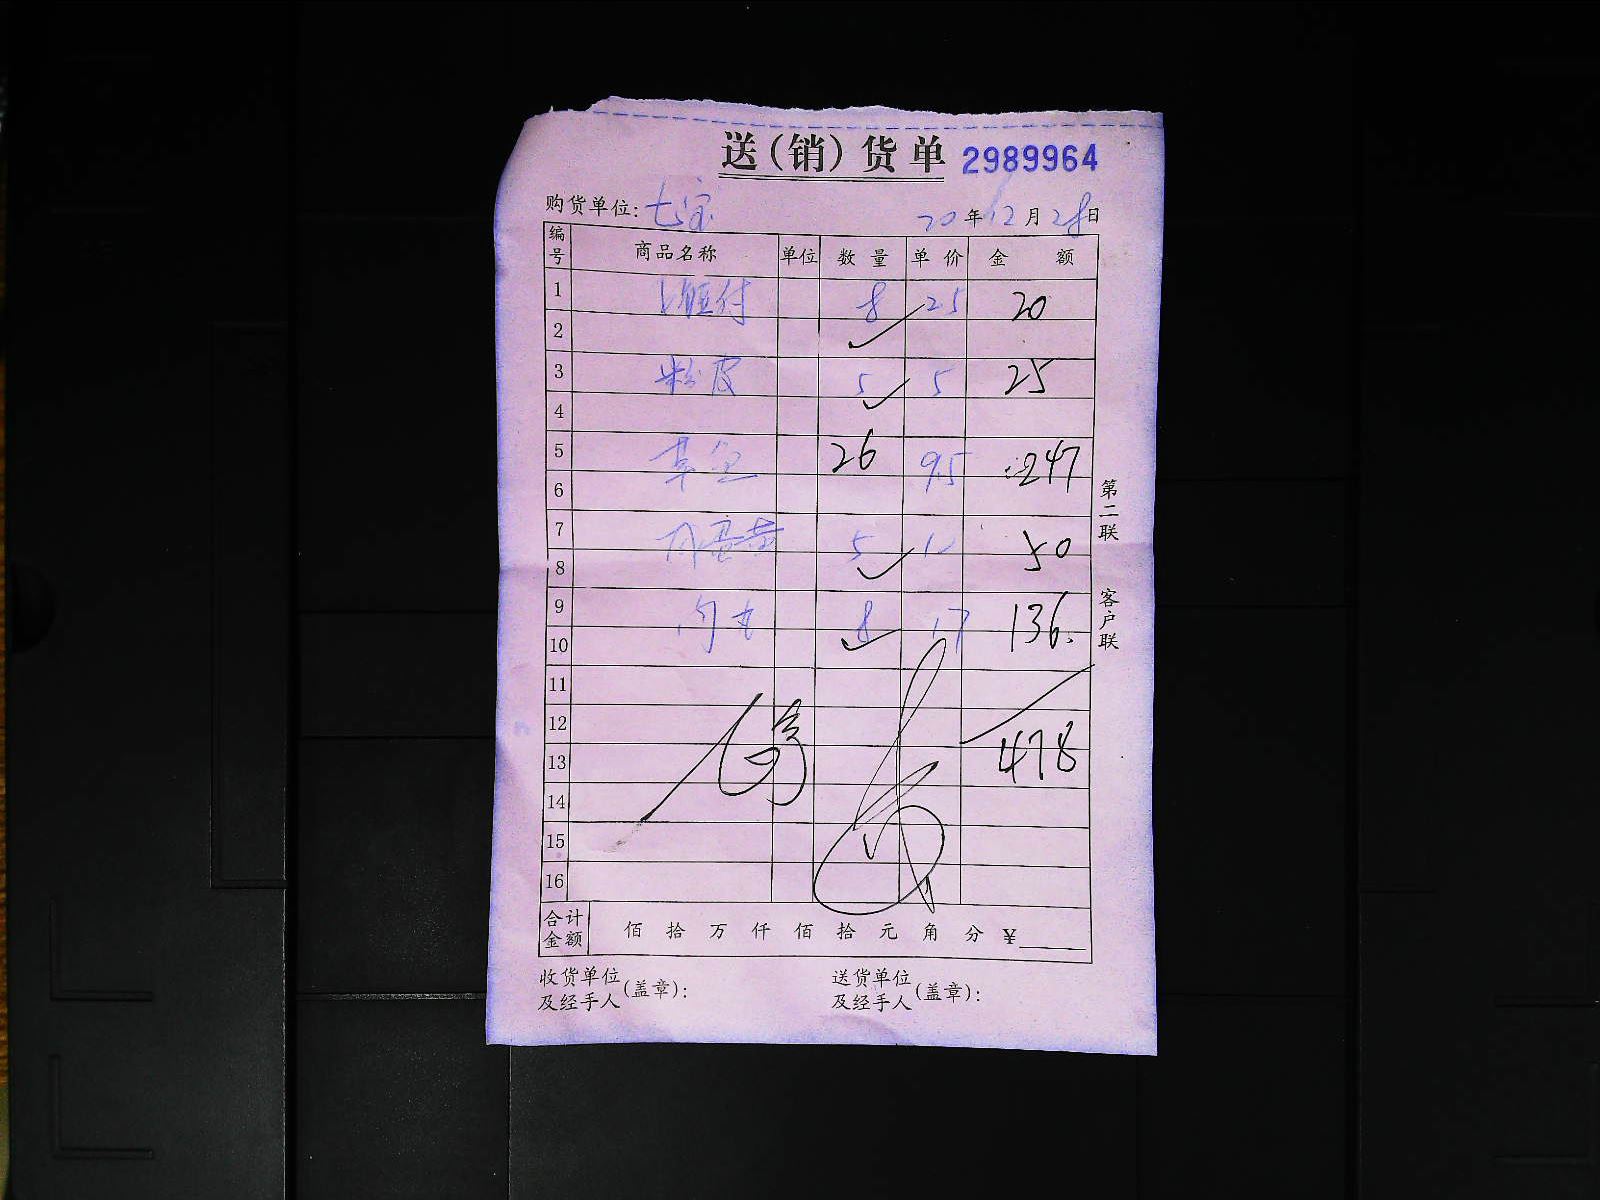 送(销)货单 2989964
购货单位: 七宝 20年12月28日
编号 商品名称 单位 数量 单价 金额
1 8 25 20
2
3 粉皮 5 5 25
4
5 草鱼 26 9.5 247
6
7 咸蛋黄 5 10 50
8
9 8 17 136.
10
11
12
13 478
14
15
16
合计金额 佰拾万仟佰拾元角分 ¥
收货单位及经手人(盖章): 送货单位及经手人(盖章):
第二联 客户联